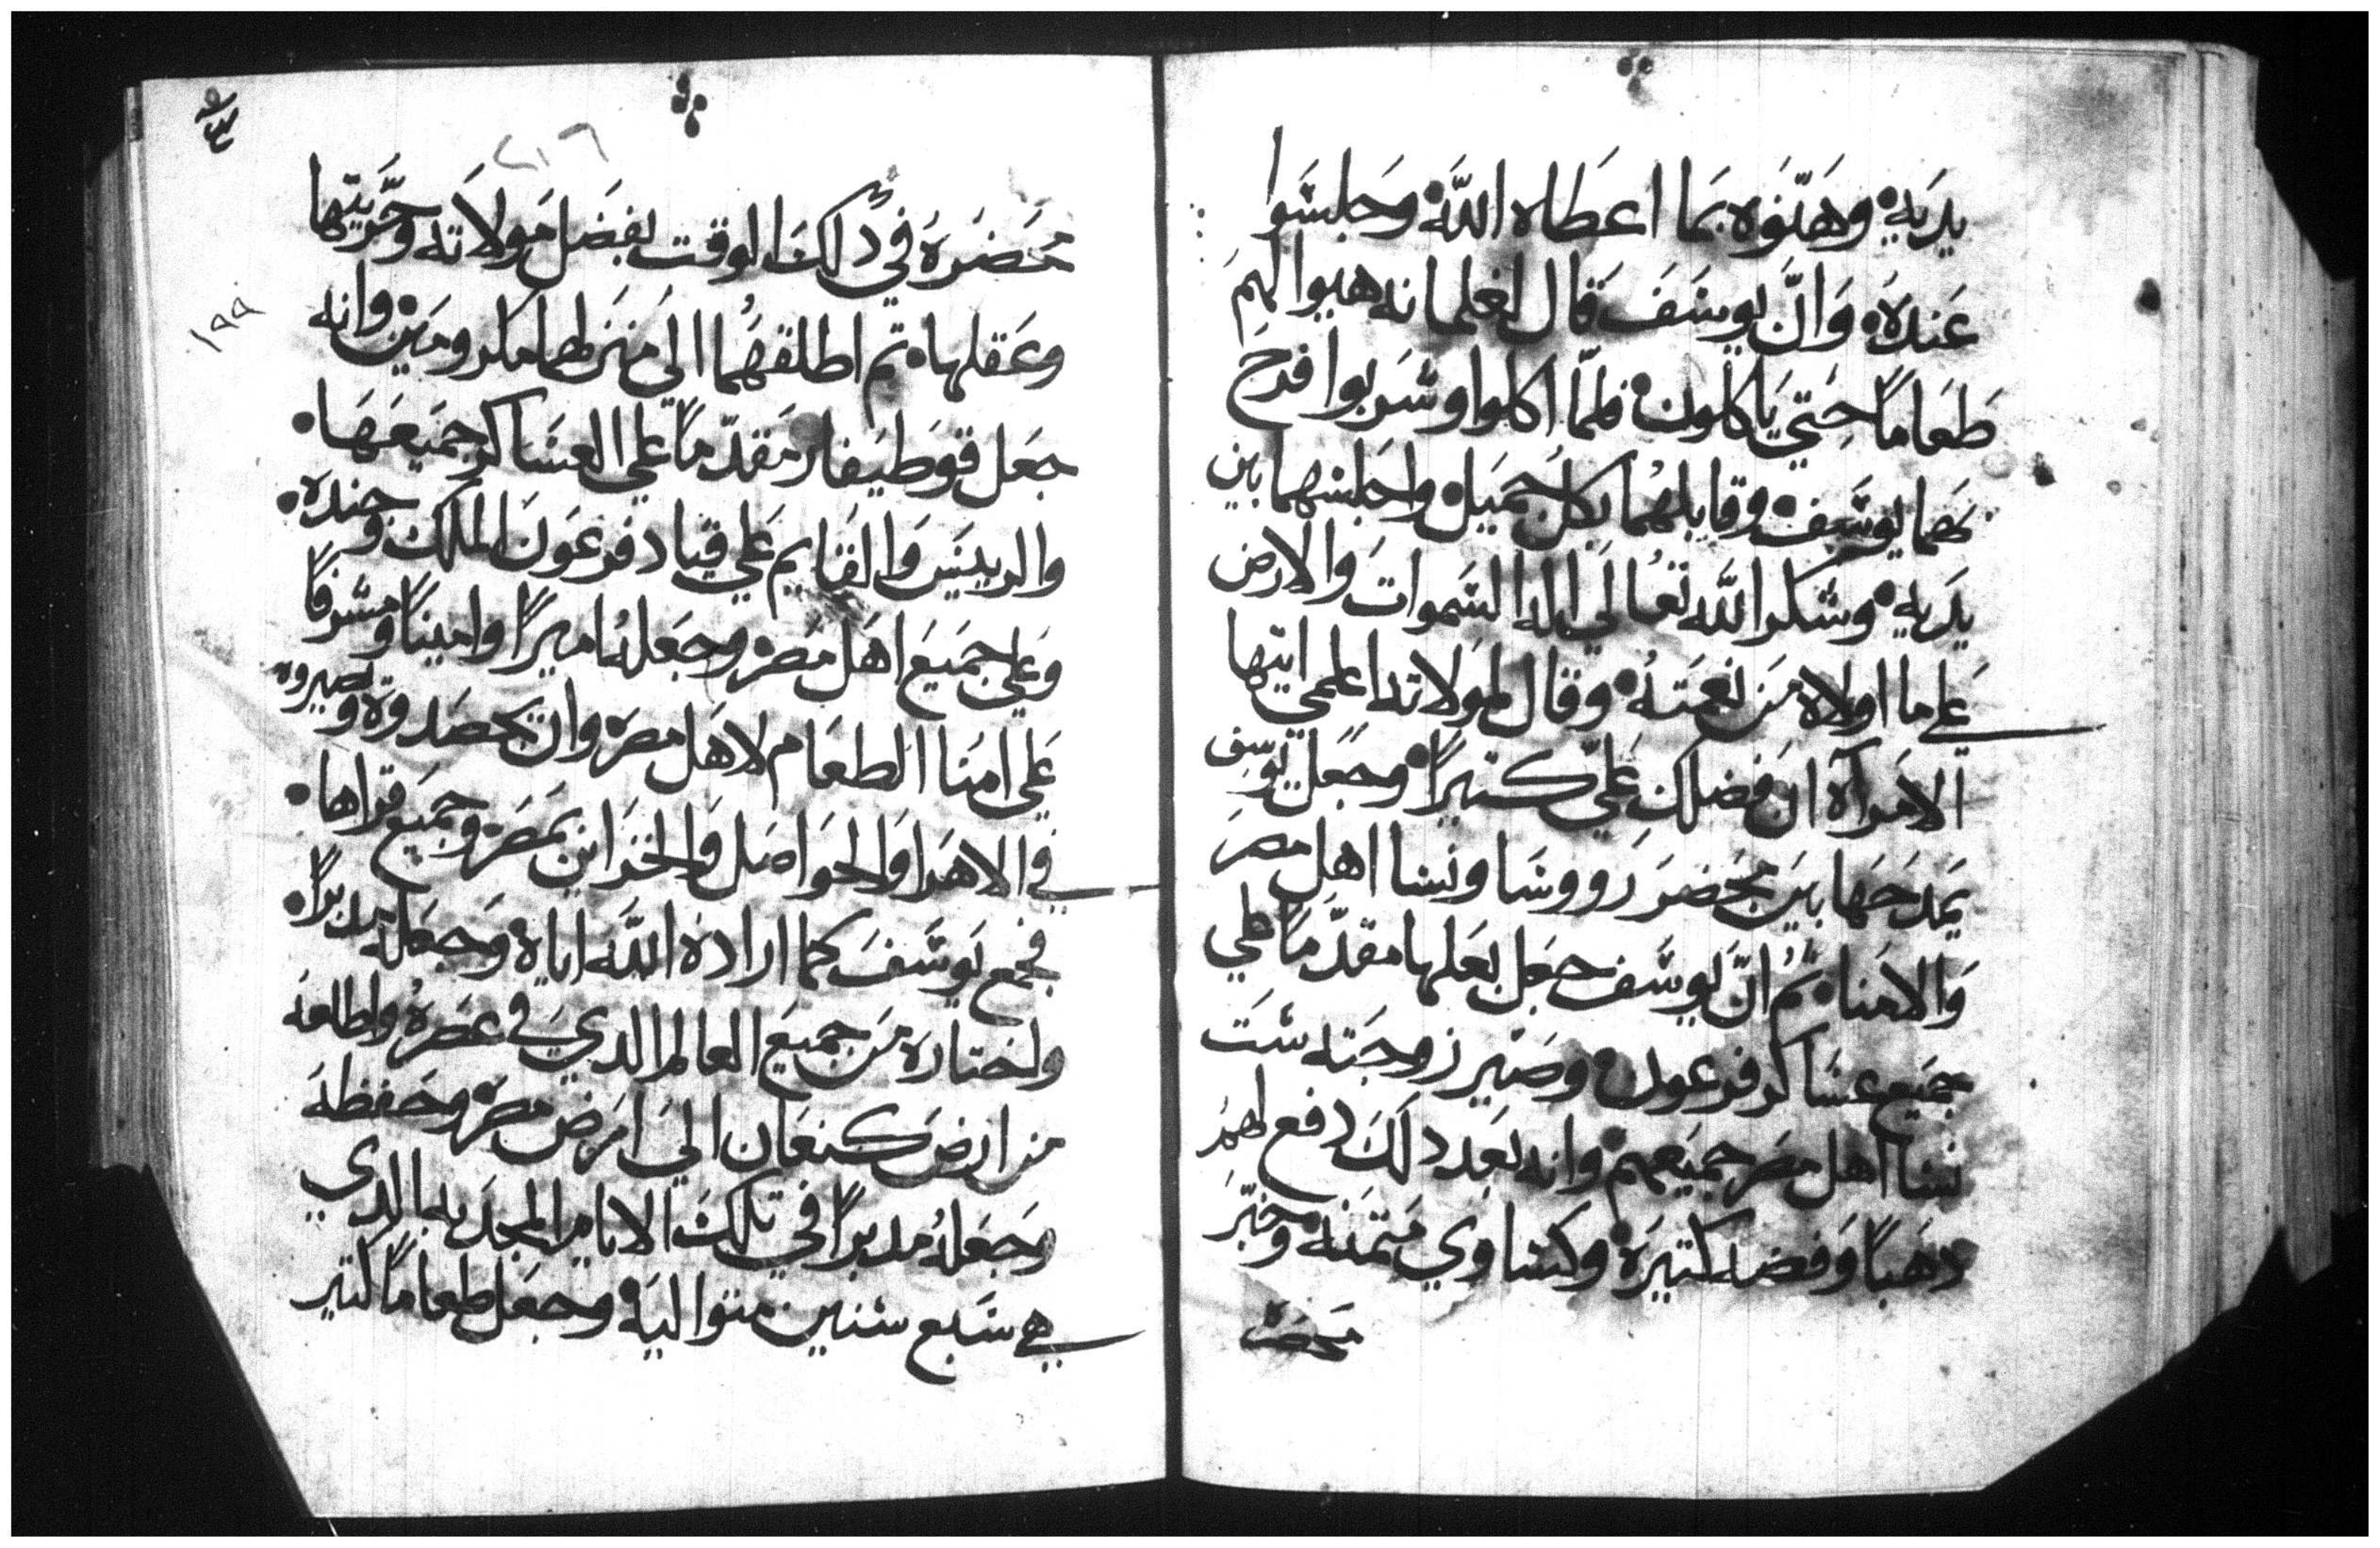 يديه • وهنوه بما اعطاه الله • وجلسوا
عنده • وان يوسف قال لغلمانه هيوا لهم
طعاماً حتي ياكلون • فلما اكلوا وشربوا فرح
بهما يوسف • وقابلهما بكل جميل • واجلسهما بين
يديه • وشكر الله تعالي اله السموات والارض
علي ما اولاه من نعمته • وقال لمولاته اعلمي ايتها
الامرآه ان فضلك عليّ كثيراً • وجعل يوسف
يمدحها بين محضر رووسا ونسا اهل مصر
والامنا • ثم انّ يوسف جعل بعلها مقدّماً علي
جميع عساكر فرعون • وصير زوجته ست
نسا اهل مصر جميعهم • وانه بعد دلك دفع لهم
دهباً وفضه كتيره • وكساوي متمنه • وخبّر
محضره
محضره في دلك الوقت بفضل مولاته وحريتها
وعقلها • تم اطلقهما الي منزلهما مكرومين • وانه
جعل قوطيفار مقدّماً علي العساكر جميعها •
والرييس والقايم علي قياد فرعون الملك وجنده •
وعلي جميع اهل مصر • وجعله اميراً واميناً ومشرفاً
علي امنا الطعام لاهل مصر • وان يحصدوه ويصيروه
في الاهرا والحواصل والخزاين بمصر • وجميع قراها •
فجمع يوسف كما اراده الله اياه • وجعله مدبراً •
واختاره من جميع العالم الدي في عصره • واطلعه
من ارض كنعان الي ارض مصر • وحفظه
وجعله مدبراً في تلك الايام المجدبه الدي
هي سبع سنين متواليه • وجعل طعاماً كتير
٢١٦
١٩٩